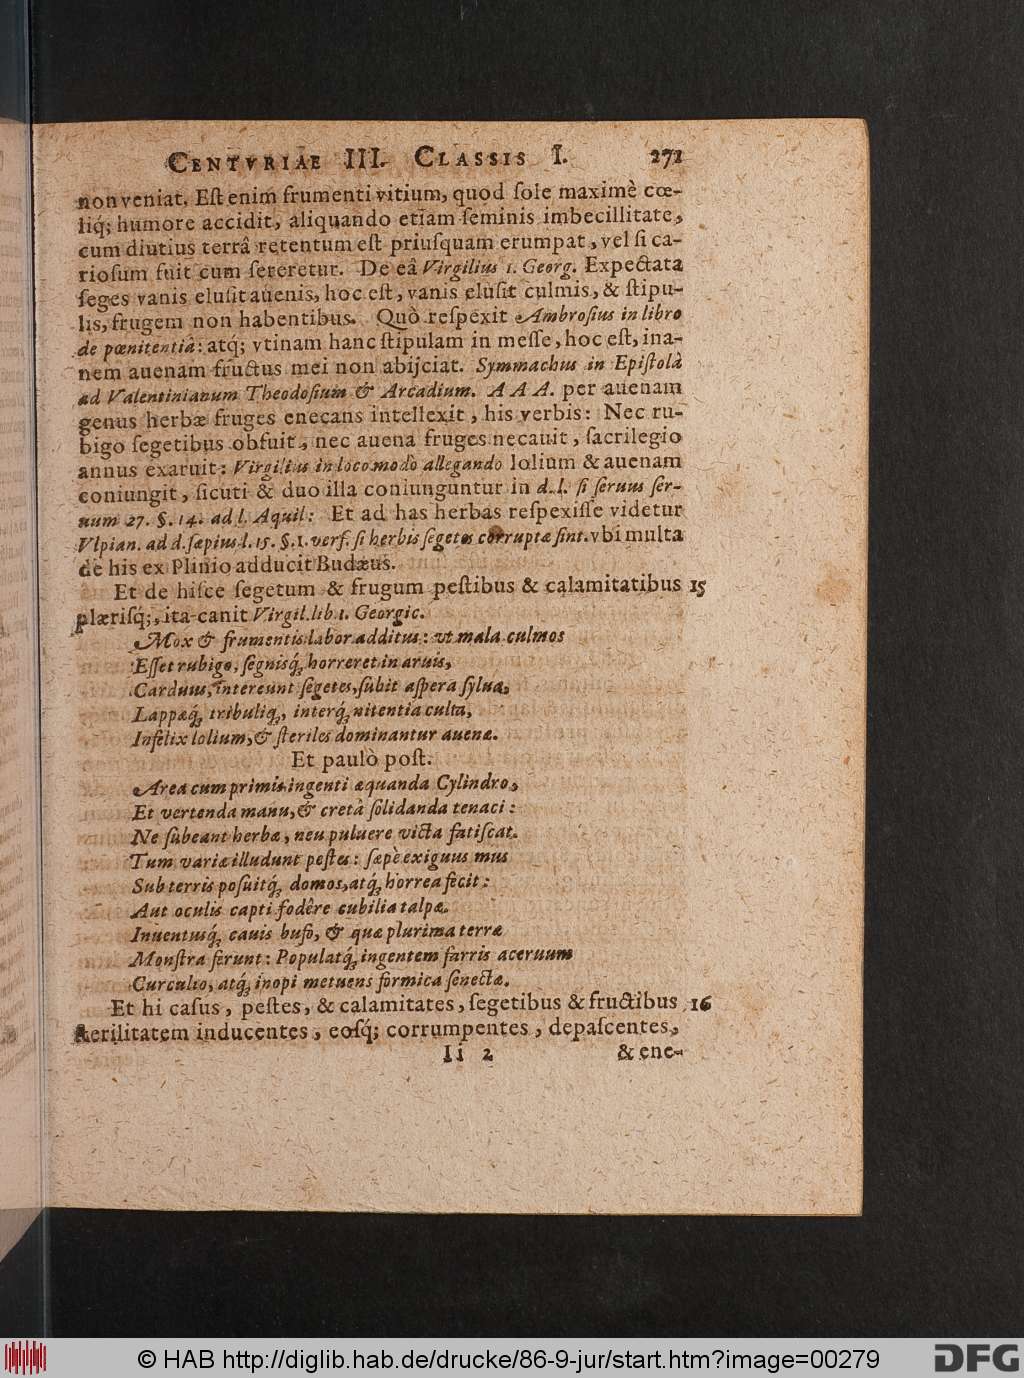 CENTVRIAE III. CLASSIS I. 271
non veniat. Eſt enim frumenti vitium, quod ſole maximè cœ-
liq́; humore accidit, aliquando etiam ſeminis imbecillitate,
cum diutius terrâ retentum eſt priuſquam erumpat, vel ſi ca-
rioſum fuit cum ſereretur. De eâ Virgilius 1. Georg. Expectata
ſeges vanis eluſit auenis, hoc eſt, vanis eluſit culmis, & ſtipu-
lis, frugem non habentibus. Quò reſpexit Ambroſius in libro
de pœnitentiâ: atq́; vtinam hanc ſtipulam in meſſe, hoc eſt, ina-
nem auenam fructus mei non abijciat. Symmachus in Epiſtolà
ad Valentinianum Theodoſium & Arcadium. A A A. per auenam
genus herbæ fruges enecans intellexit, his verbis: Nec ru-
bigo ſegetibus obfuit, nec auena fruges necauit, ſacrilegio
annus exaruit: Virgilius in loco modò allegando lolium & auenam
coniungit, ſicuti & duo illa coniunguntur in d. l. ſi ſeruus ſer-
uum 27. §. 14. ad l. Aquil: Et ad has herbas reſpexiſſe videtur
Vlpian. ad d. ſæpius l. 15. §. 1. verſ. ſi herbis ſegetes corruptæ ſint. vbi multa
de his ex Plinio adducit Budæus.
Et de hiſce ſegetum & frugum peſtibus & calamitatibus 15
plæriſq́;, ita canit Virgil. lib. 1. Georgic.
Mox & frumentis labor additus: vt mala culmos
Eſſet rubigo, ſegniſq́; horreret in aruis,
Carduus, intereunt ſegetes, ſubit aſpera ſylua,
Lappæq́; tribuliq, interq́; nitentia culta,
Infelix lolium, & ſteriles dominantur auenæ.
Et paulò poſt.
Area cum primis ingenti æquanda Cylindro,
Et vertenda manu, & cretà ſolidanda tenaci:
Ne ſubeant herbæ, neu puluere victa fatiſcat.
Tum variæ illudunt peſtes: ſæpè exiguus mus
Sub terris poſuitq́; domos, atq́; horrea fecit:
Aut oculis capti fodêre cubilia talpæ.
Inuentusq́; cauis bufo, & quæ plurima terræ
Monſtra ferunt: Populatq́; ingentem farris aceruum
Curculio, atq́; inopi metuens formica ſenectæ.
Et hi caſus, peſtes, & calamitates, ſegetibus & fructibus 16
ſterilitatem inducentes, eoſq́; corrumpentes, depaſcentes,
Ii 2 & ene-
© HAB http://diglib.hab.de/drucke/86-9-jur/start.htm?image=00279
DFG